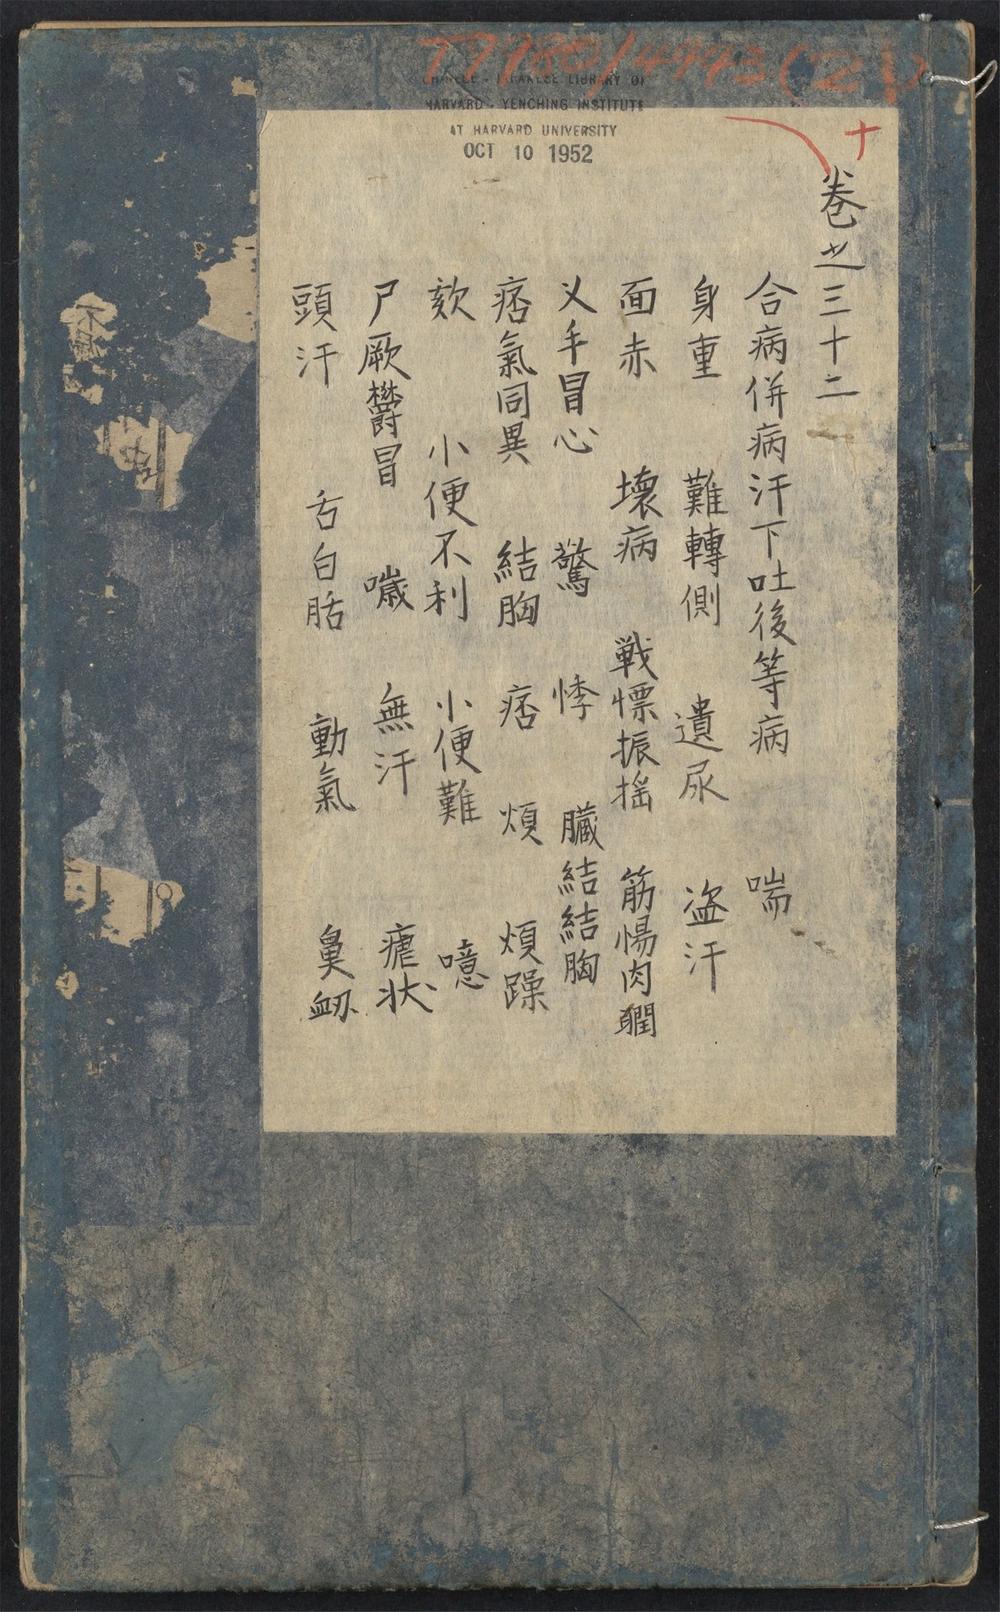 T7980/4993(21)
CHINESE - JAPANESE LIBRARY OF
HARVARD - YENCHING INSTITUTE
AT HARVARD UNIVERSITY
OCT 10 1952
十
卷之三十二
合病併病汗下吐後等病 喘
身重 難轉側 遺尿 盗汗
面赤 壊病 戦慄振揺 筋惕肉瞤
乂手冒心 驚 悸 臓結結胸
痞氣同異 結胸 痞 煩 煩躁
欬 小便不利 小便難 噫
尸厥欝冒 噦 無汗 瘧状
頭汗 舌白胎 動氣 鼻衂